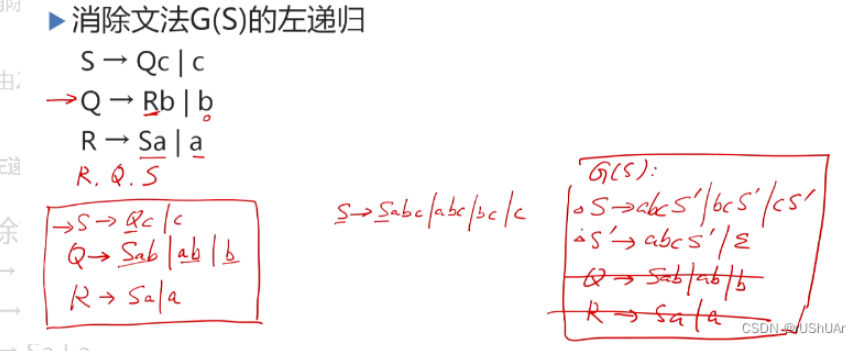 ▶消除文法G(S)的左递归
S → Qc | c
→ Q → Rb | b
R → Sa | a
R. Q. S
→S → Qc | c
Q → Sab | ab | b
R → Sa | a
S → Sabc | abc | bc | c
G(S):
S → abcS' | bcS' | cS'
S' → abcS' | ε
Q → Sab | ab | b
R → Sa | a
CSDN @UShUAr